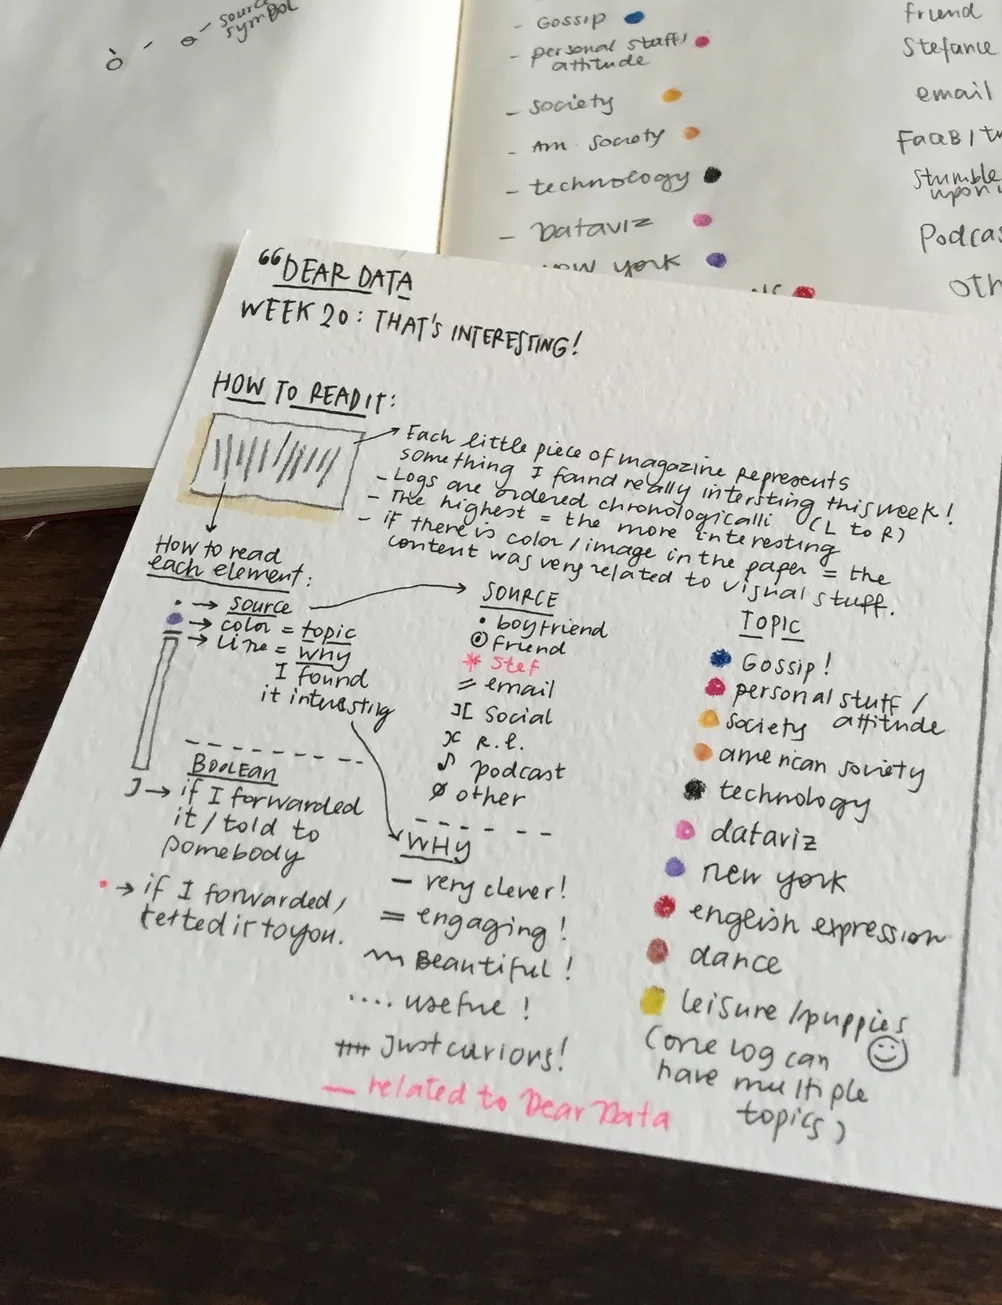 source
symbol
- Gossip
- personal stuff/
attitude
- society
- Am. society
- technology
- Dataviz
york
friend
Stefanie
email
Stumble
upon
Podcas
oth
"DEAR DATA
WEEK 20: THAT'S INTERESTING!
HOW TO READ IT:
Each little piece of magazine represents
something I found really intersting this week!
- Logs are ordered chronologicalli (L to R)
- The highest = the more interesting
- if there is color/image in the paper = the
content was very related to visual stuff.
How to read
each element:
→ source
→ color = topic
→ Line = why
I found
it interesting
BOOLEAN
→ if I forwarded
it/told to
somebody
→ if I forwarded/
tetted it to you.
SOURCE
boyfriend
Friend
Stef
email
Social
R.L.
podcast
other
WHY
— very clever!
= engaging!
Beautiful!
.... useful!
Just curiors!
— related to Dear Data
TOPIC
Gossip!
personal stuff/
attitude
society
american society
technology
dataviz
new york
english expression
dance
leisure/puppies
(one log can
have multiple
topics)